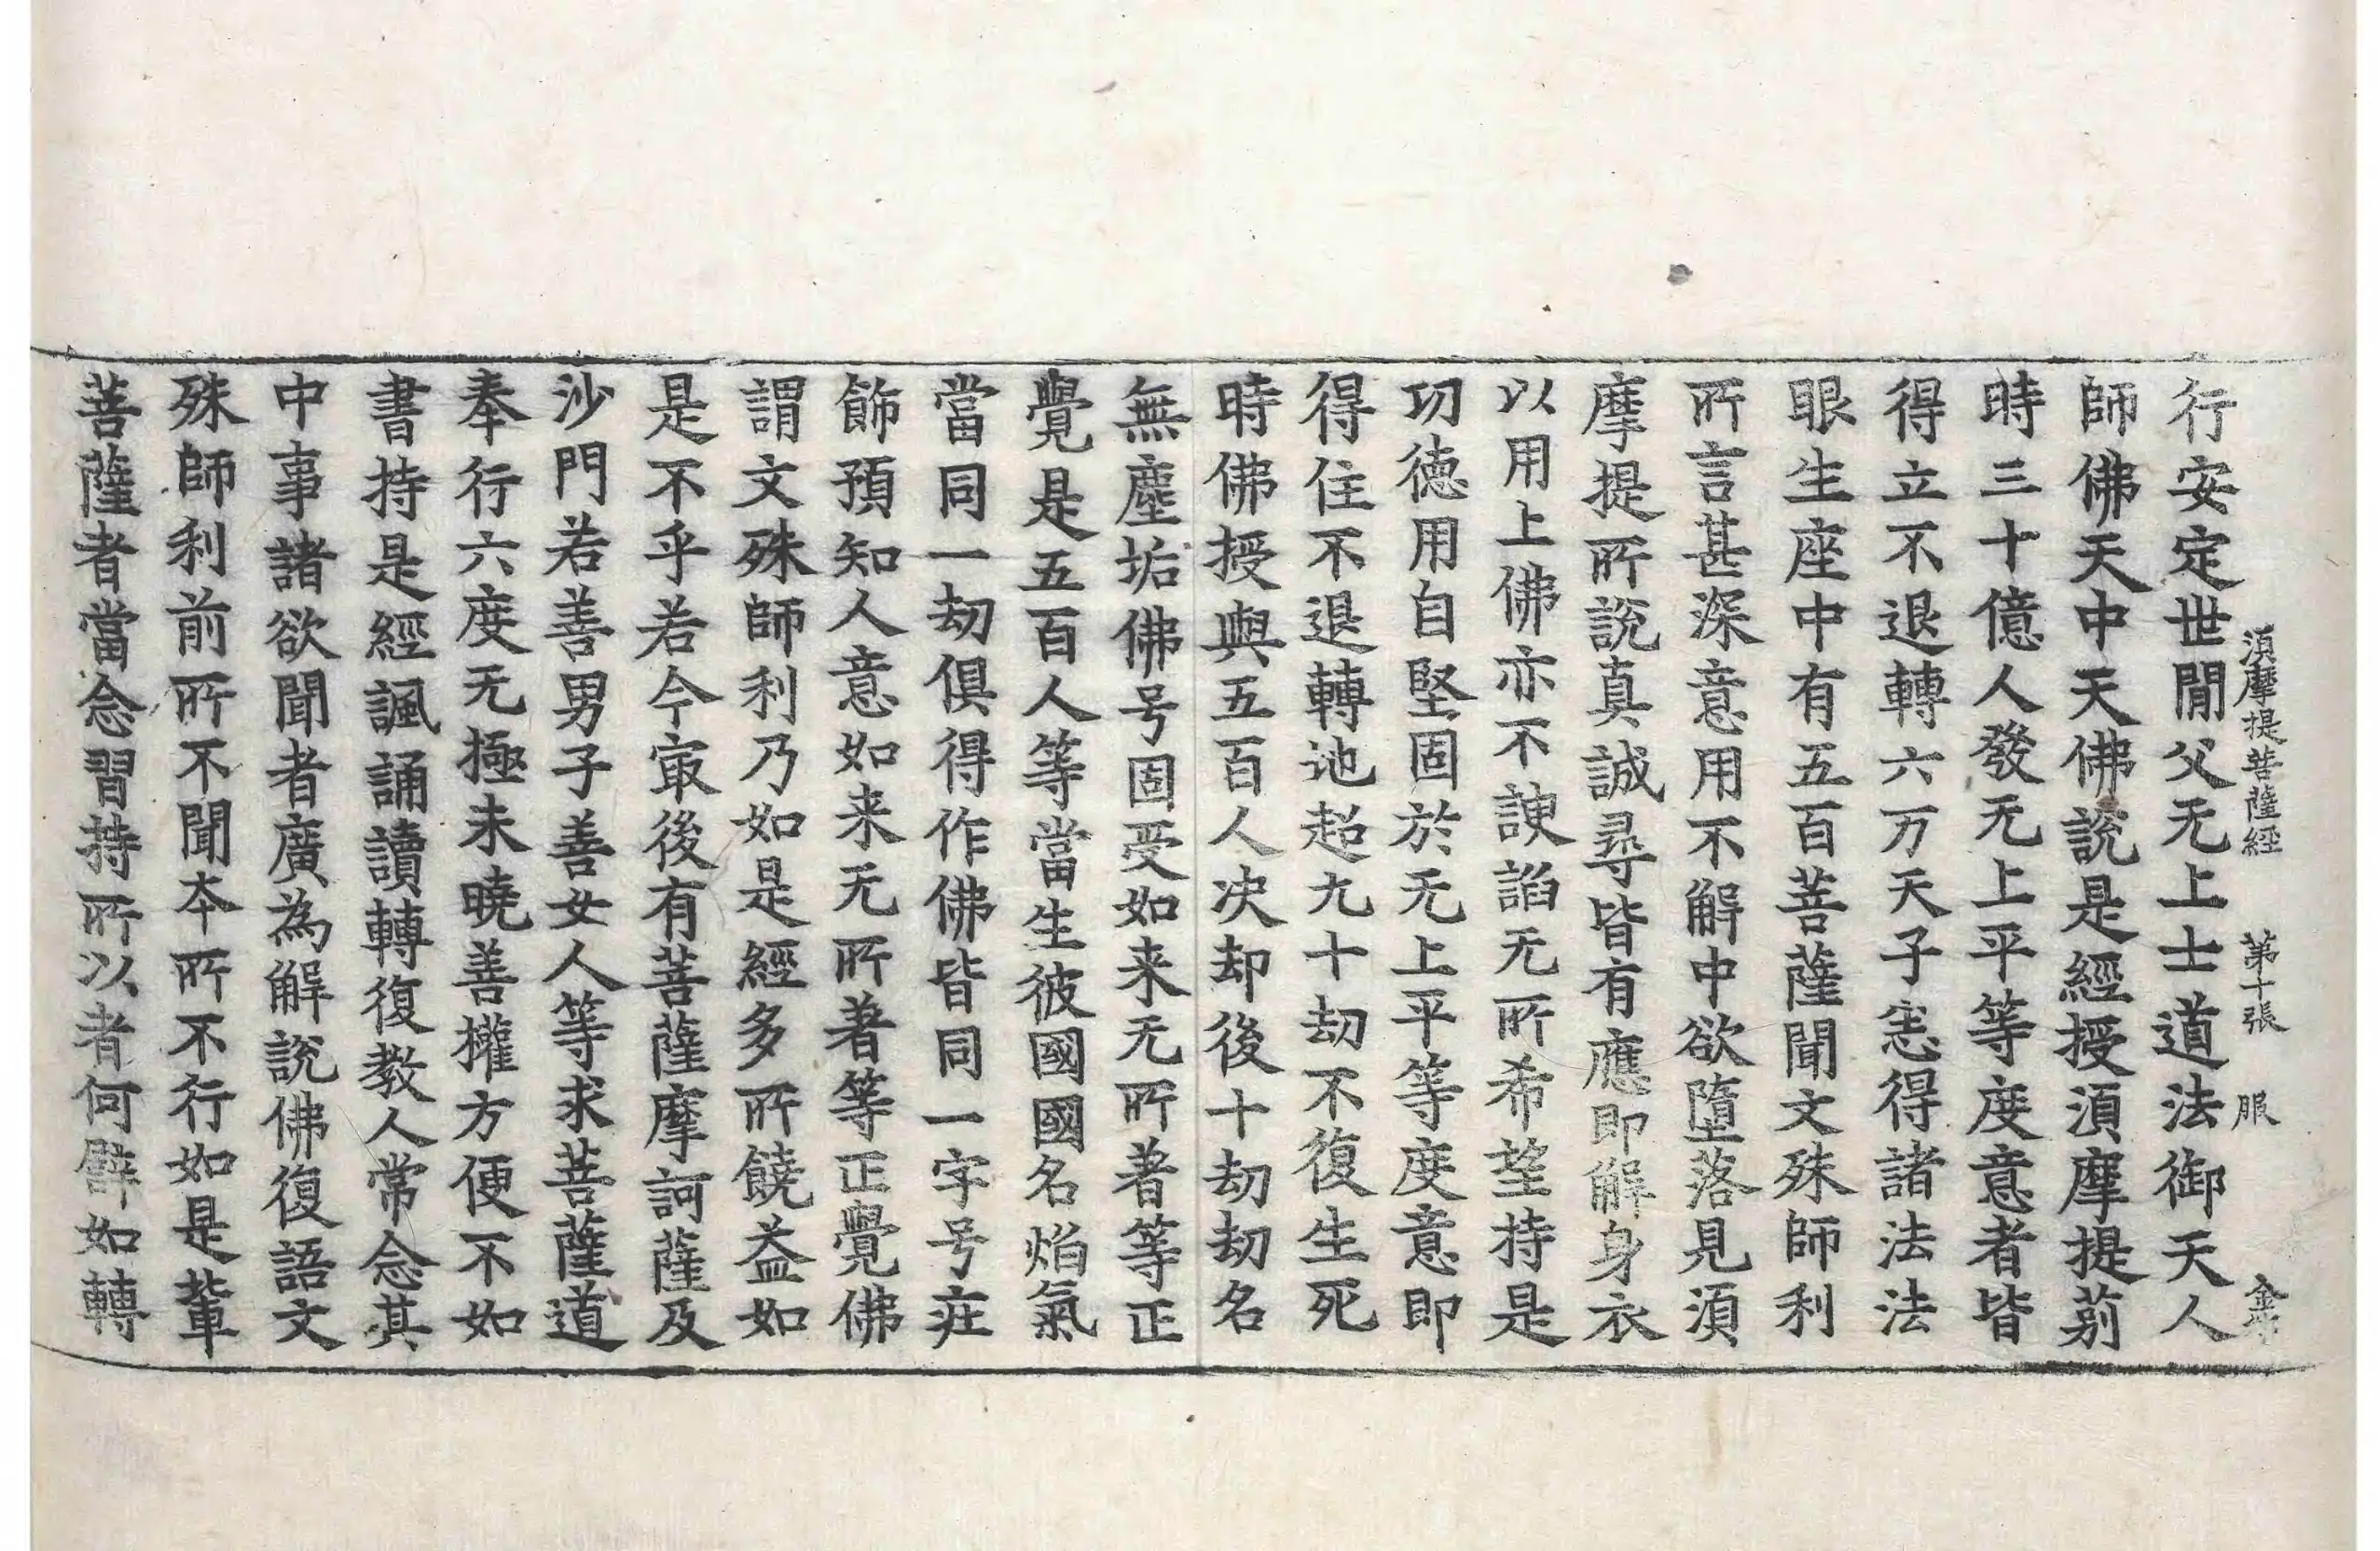 湏摩提菩薩經 第十張 服
行安定世閒父无上士道法御天人
師佛天中天佛説是經授湏摩提莂
時三十億人發无上平等度意者皆
得立不退轉六万天子悉得諸法法
眼生座中有五百菩薩聞文殊師利
所言甚深意用不解中欲墮落見湏
摩提所説真誠尋皆有應即解身衣
以用上佛亦不諛諂无所希望持是
功徳用自堅固於无上平等度意即
得住不退轉地超九十劫不復生死
時佛授與五百人决却後十劫劫名
無塵垢佛号固受如来无所著等正
覺是五百人等當生彼國國名焰氣
當同一劫俱得作佛皆同一字号疘
飾預知人意如来无所著等正覺佛
謂文殊師利乃如是經多所饒益如
是不乎若今㝡後有菩薩摩訶薩及
沙門若善男子善女人等求菩薩道
奉行六度无極未曉善權方便不如
書持是經諷誦讀轉復教人常念其
中事諸欲聞者廣為解説佛復語文
殊師利前所不聞夲所不行如是輩
菩薩者當念習持所以者何譬如轉